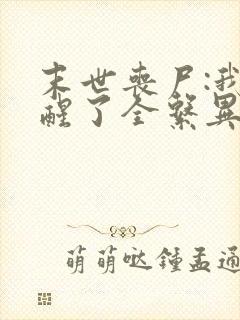 末世丧尸:我
醒了全系异
萌萌哒锺孟通